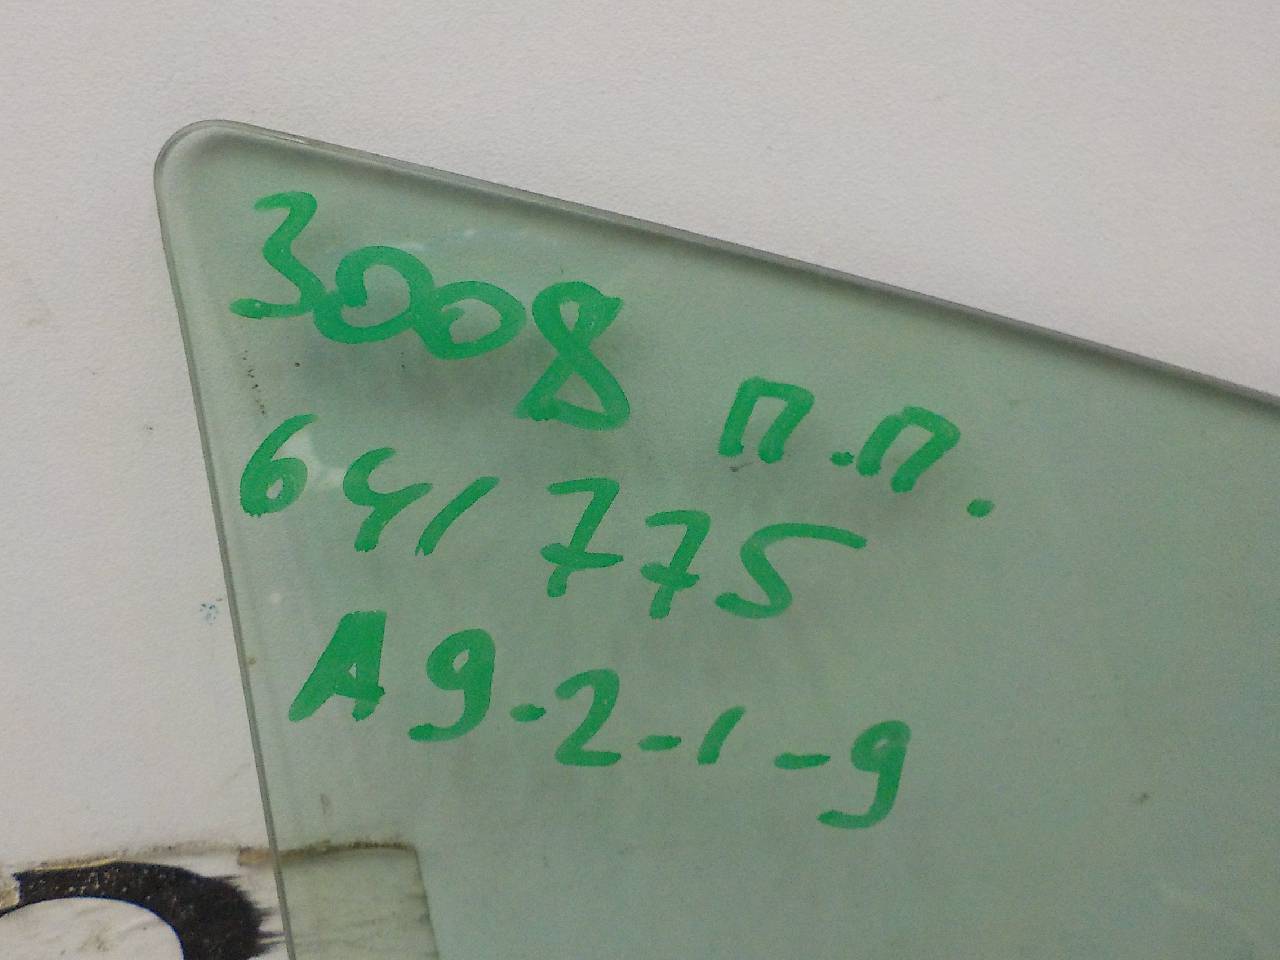 3008 П.П.
641775
А9-2-1-9